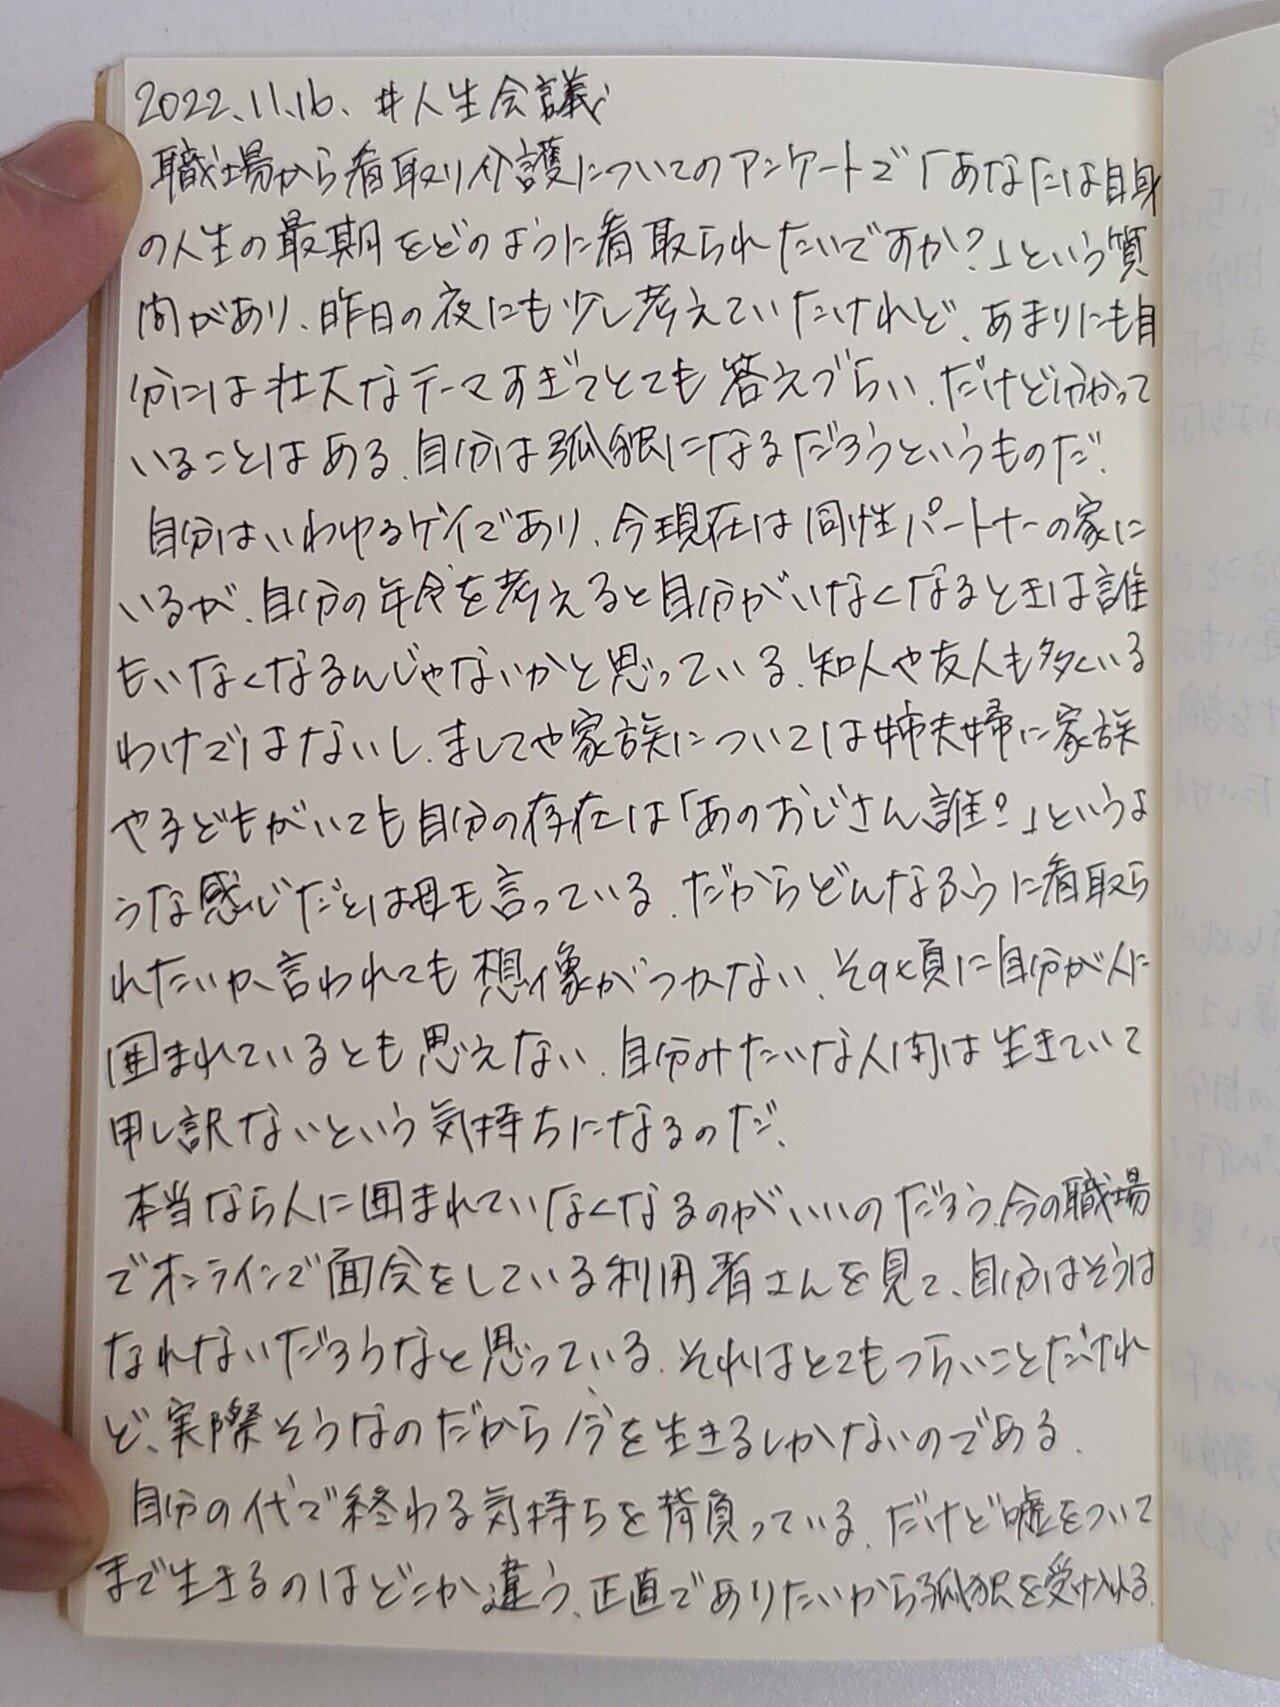 2022.11.16. #人生会議
職場から看取り介護についてのアンケートで「あなたは自身
の人生の最期をどのように看取られたいですか?」という質
問があり、昨日の夜にも少し考えていたけれど、あまりにも自
分には壮大なテーマすぎてとても答えづらい。だけど分かって
いることはある。自分は孤独になるだろうというものだ。
自分はいわゆるゲイであり、今現在は同性パートナーの家に
いるが、自分の年令を考えると自分がいなくなるときは誰
もいなくなるんじゃないかと思っている。知人や友人も多くいる
わけではないし、ましてや家族については姉夫婦に家族
や子どもがいても自分の存在は「あのおじさん誰?」というよ
うな感じだとは母も言っている。だからどんなふうに看取ら
れたいか言われても想像がつかない。その頃に自分が人に
囲まれているとも思えない。自分みたいな人間は生きていて
申し訳ないという気持ちになるのだ。
本当なら人に囲まれていなくなるのがいいのだろう。今の職場
でオンラインで面会をしている利用者さんを見て、自分はそうは
なれないだろうなと思っている。それはとてもつらいことだけれ
ど、実際そうなのだから今を生きるしかないのである。
自分の代で終わる気持ちを背負っている。だけど嘘をついて
まで生きるのはどこか違う。正直でありたいから孤独を受け入れる。